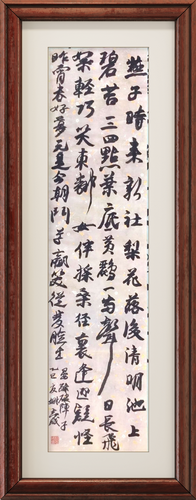 燕子時来新社梨花落後清明池上
碧苔三四點葉底黄鸝一兩聲日長飛
絮輕巧笑東鄰女伴採桑徑裏逢迎疑怪
昨宵春好夢元是今朝鬥草贏笑從雙臉生
晏殊破陣子
乙巳